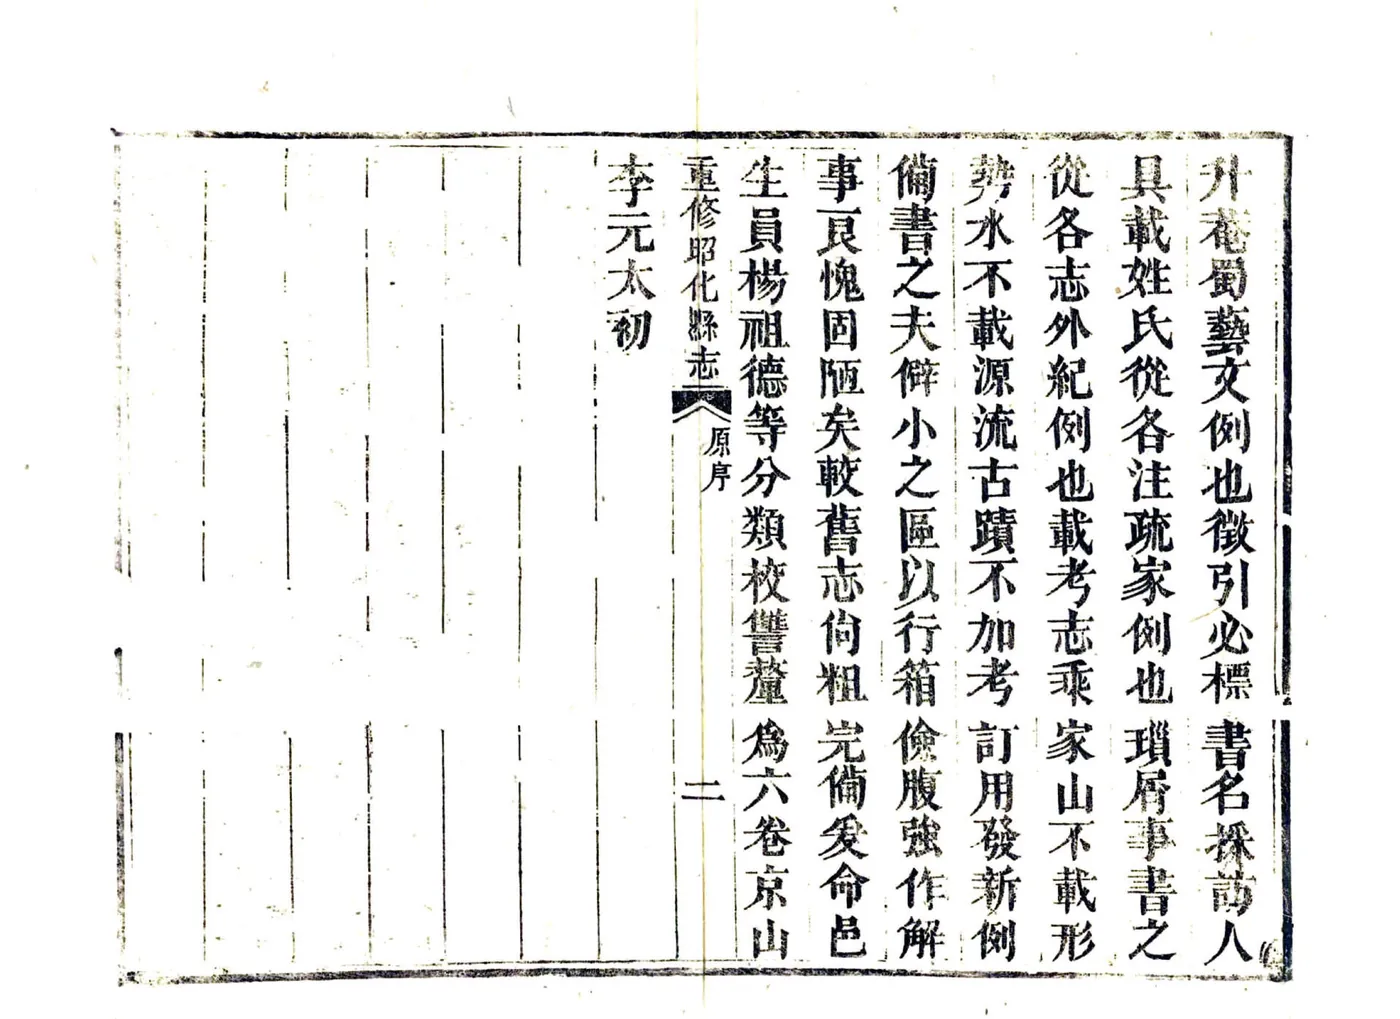 升菴蜀藝文例也徵引必標書名採訪人
具載姓氏從各注疏家例也瑣屑事書之
從各志外紀例也載考志乘家山不載形
勢水不載源流古蹟不加考訂用發新例
備書之夫僻小之區以行箱儉腹強作解
事艮愧固陋矣較舊志尙粗完備爰命邑
生員楊祖德等分類校讐釐爲六卷京山
重修昭化縣志
原序
二
李元太初